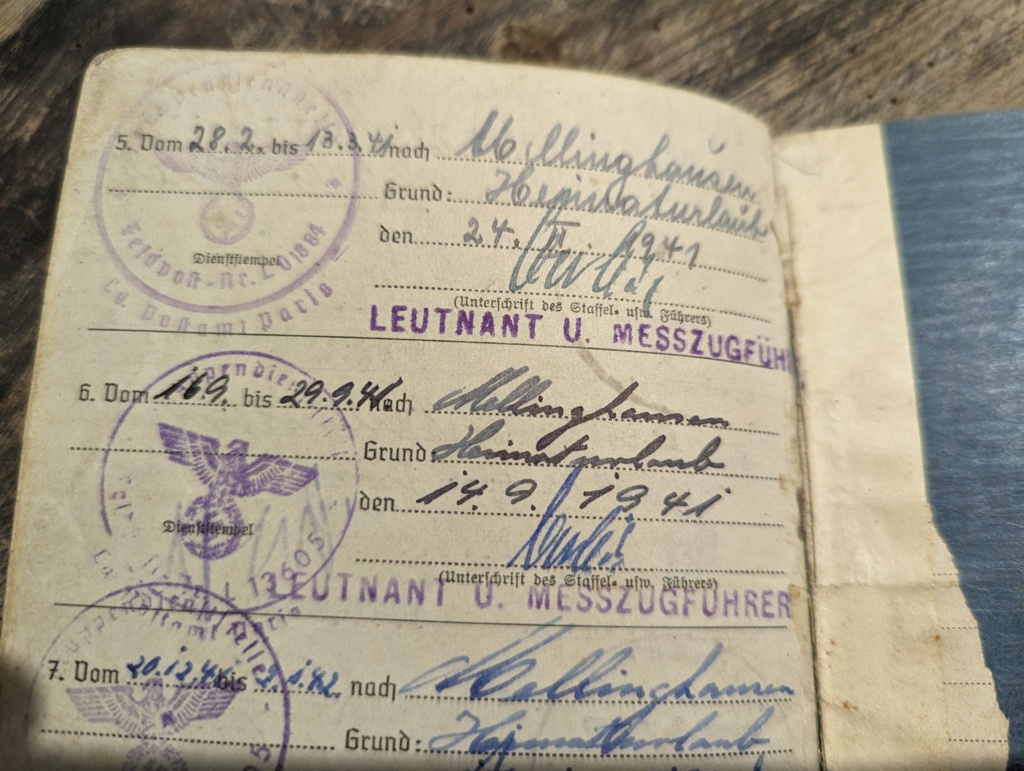 5. Vom 28.2. bis 13.3.41 nach Mellinghausen
Grund: Heimaturlaub
den 24. II. 1941
Dienststempel
Feldpost-Nr. L 01884
Lg. Postamt Paris
(Unterschrift des Staffel- usw. Führers)
LEUTNANT U. MESSZUGFÜH
6. Vom 16.9. bis 29.9.41 nach Mellinghausen
Grund Heimaturlaub
den 14.9.1941
Dienststempel
L 13605
(Unterschrift des Staffel- usw. Führers)
LEUTNANT U. MESSZUGFÜHRER
7. Vom 20.12.41 bis 2.1.42 nach Mellinghausen
Grund: Heimaturlaub